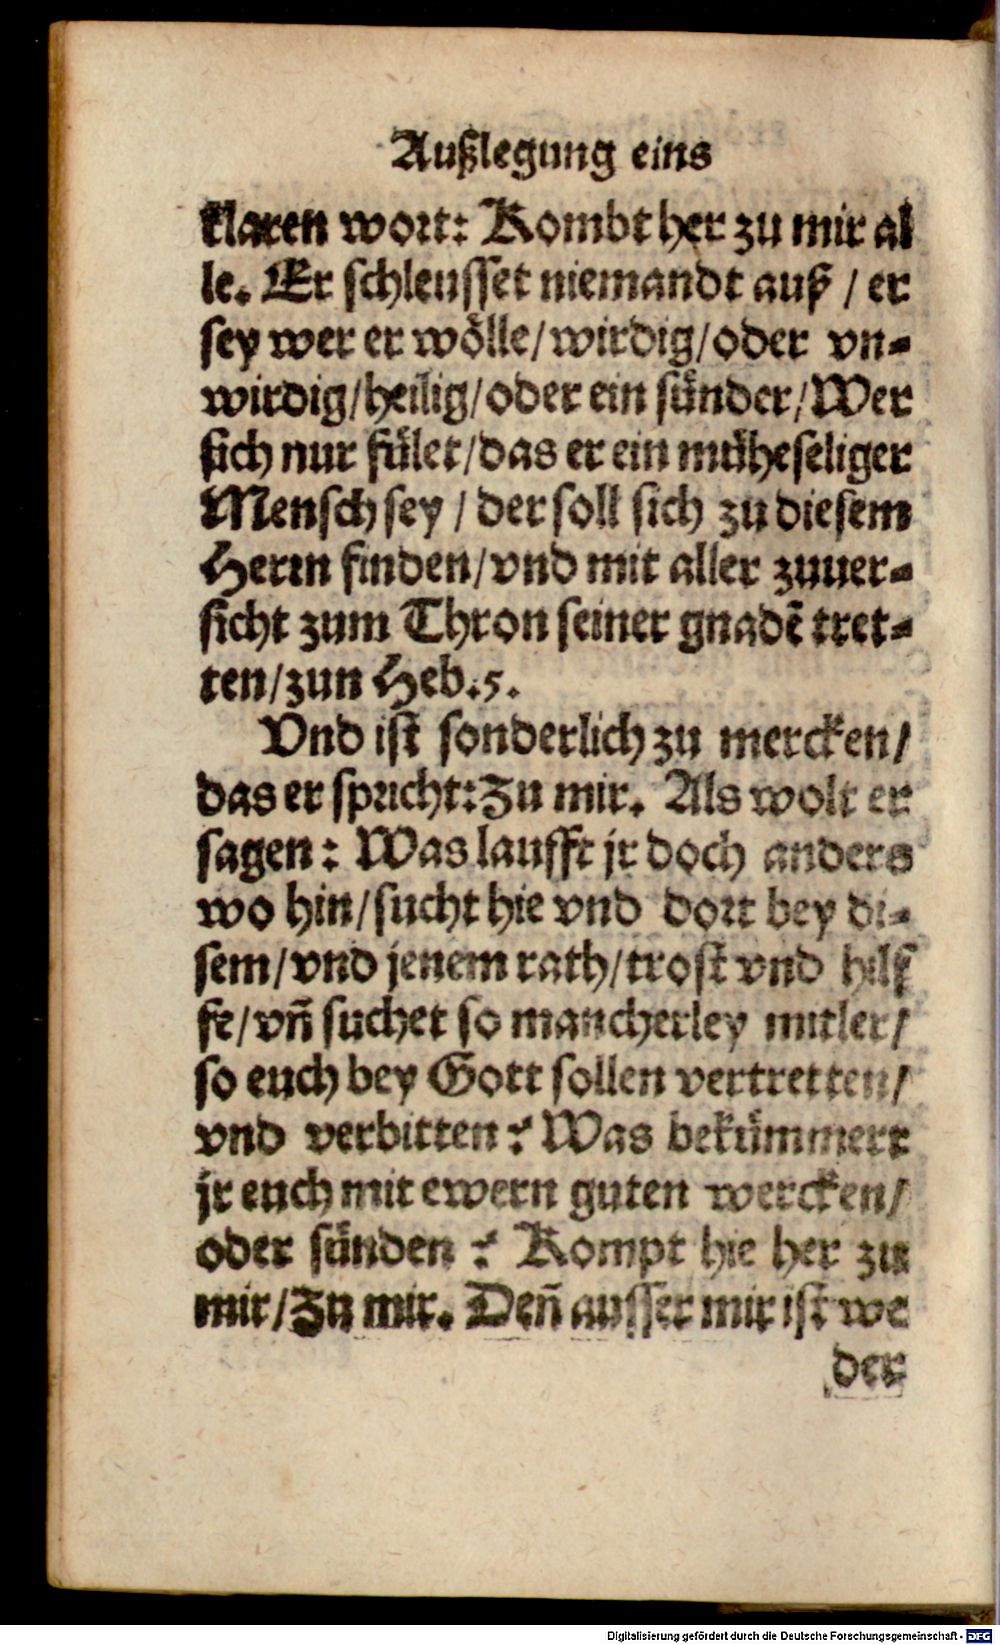 Außlegung eins
klaren wort: Kombt her zu mir al
le. Er schleusset niemandt auß / er
sey wer er wölle/ wirdig/ oder vn-
wirdig/ heilig/ oder ein sünder/ Wer
sich nur fület/ das er ein müheseliger
Mensch sey / der soll sich zu diesem
Herrn finden/ vnd mit aller zuuer-
sicht zum Thron seiner gnadē tret-
ten/ zun Heb. 5.
Vnd ist sonderlich zu mercken/
das er spricht: Zu mir. Als wolt er
sagen: Was laufft jr doch anders
wo hin/ sucht hie vnd dort bey di-
sem/ vnd jenem rath/ trost vnd hilf
fe/ vñ suchet so mancherley mitler/
so euch bey Gott sollen vertretten/
vnd verbitten? Was bekümmert
jr euch mit ewern guten wercken/
oder sünden? Kompt hie her zu
mir/ Zu mir. Deñ ausser mir ist we
der
Digitalisierung gefördert durch die Deutsche Forschungsgemeinschaft - DFG